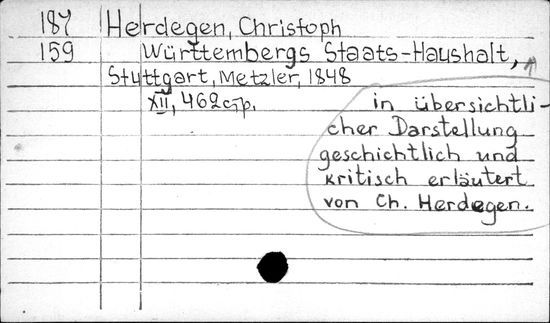 187 Herdegen, Christoph
159 Württembergs Staats-Haushalt,
Stuttgart, Metzler, 1848
XII, 462 стр.
in übersichtli-
cher Darstellung
geschichtlich und
kritisch erläutert
von Ch. Herdegen.